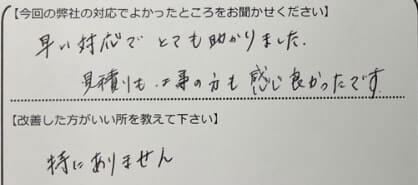 【今回の弊社の対応でよかったところをお聞かせください】
早い対応でとても助かりました.
見積りも工事の方も感じ良かったです.
【改善した方がいい所を教えて下さい】
特にありません